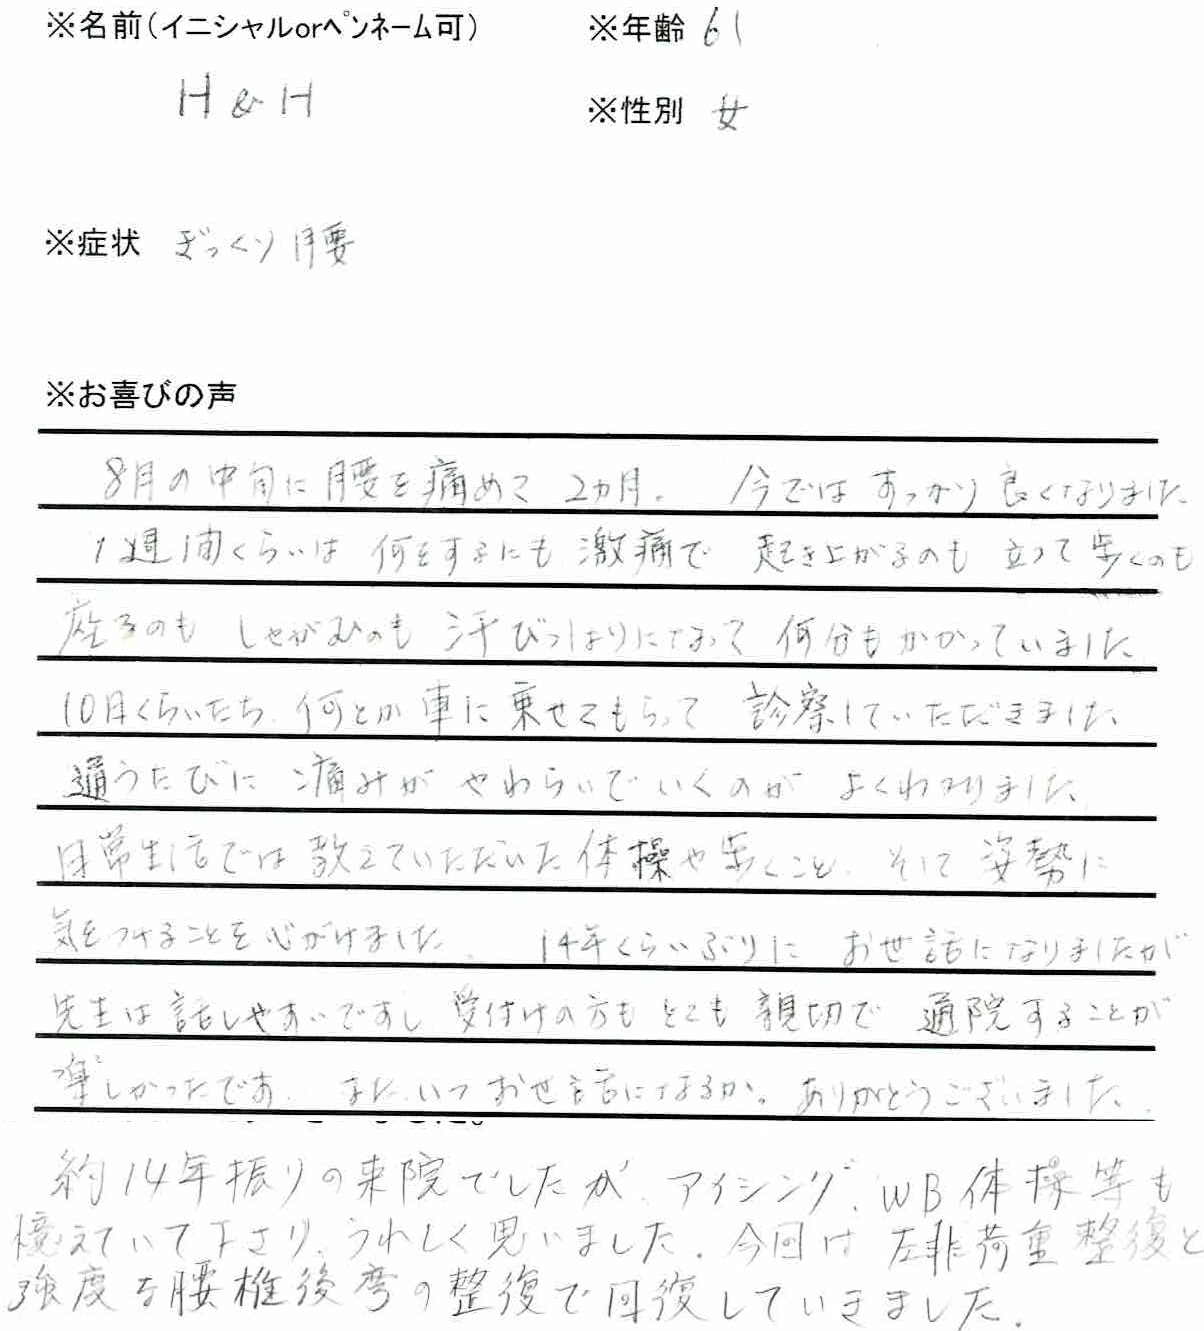 ※名前(イニシャルorペンネーム可)
H & H
※年齢 61
※性別 女
※症状 ぎっくり腰
※お喜びの声
8月の中旬に腰を痛めて2カ月。 今では すっかり良くなりました。
1週間くらいは 何をするにも 激痛で 起き上がるのも 立って歩くのも
座るのも しゃがむのも 汗びっしょりになって 何分もかかっていました。
10日くらいたち、何とか車に乗せてもらって 診察していただきました。
通うたびに 痛みが やわらいでいくのが よくわかりました。
日常生活では 教えていただいた 体操や歩くこと、そして 姿勢に
気をつけることを心がけました。 14年くらいぶりに お世話になりましたが
先生は話しやすいですし 受付けの方もとても親切で 通院することが
楽しかったです。また、いつ お世話になるか。ありがとうございました。
約14年振りの来院でしたが、アイシング、WB体操等も
憶えていて下さり、うれしく思いました。今回は 左非荷重整復と
強度な腰椎後弯の整復で回復していきました。